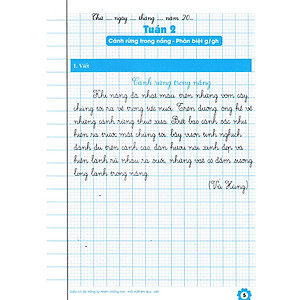 Thứ ... ngày ... tháng ... năm 20...
Tuần 2
Cánh rừng trong nắng - Phân biệt g/gh
1. Viết
Cánh rừng trong nắng
Khi nắng đã nhạt màu trên những vòm cây,
chúng tôi ra về trong tiếc nuối. Trên đường, ông kể về
những cánh rừng thuở xưa. Biết bao cảnh sắc như
hiện ra trước mắt chúng tôi: bầy vượn tinh nghịch
đánh đu trên cành cao, đàn hươu nai xinh đẹp và
hiền lành rủ nhau ra suối, những vạt cỏ đẫm sương
long lanh trong nắng.
(Vũ Hùng)
5